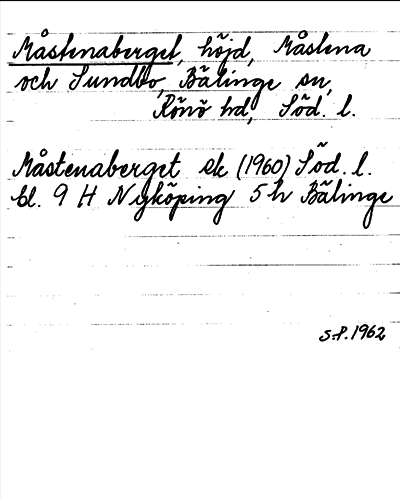 Måstenaberget, höjd, Måstena
och Sundbo, Bälinge sn,
Rönö hd, Söd. l.
Måstenaberget ek (1960) Söd. l.
bl. 9 H Nyköping 5 h Bälinge
S.P. 1962